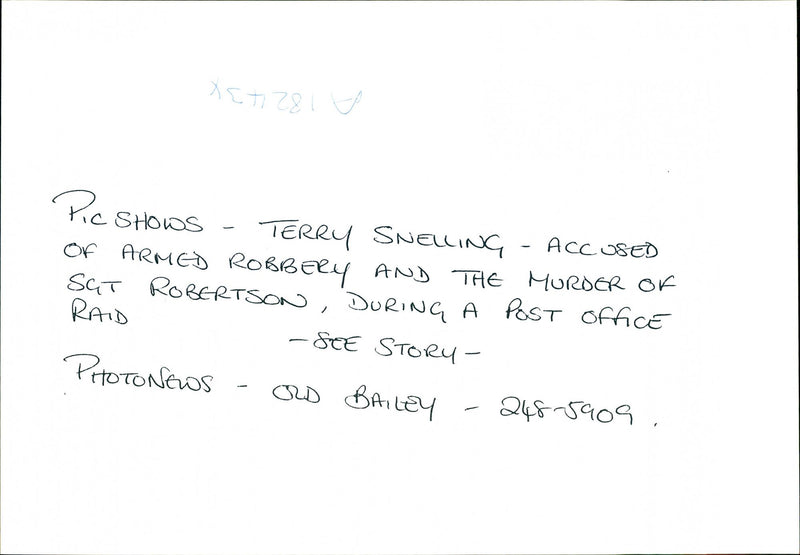 A18243X
PIC SHOWS - TERRY SNELLING - ACCUSED
OF ARMED ROBBERY AND THE MURDER OF
SGT ROBERTSON, DURING A POST OFFICE
RAID
- SEE STORY -
PHOTONEWS - OLD BAILEY - 248-5909.